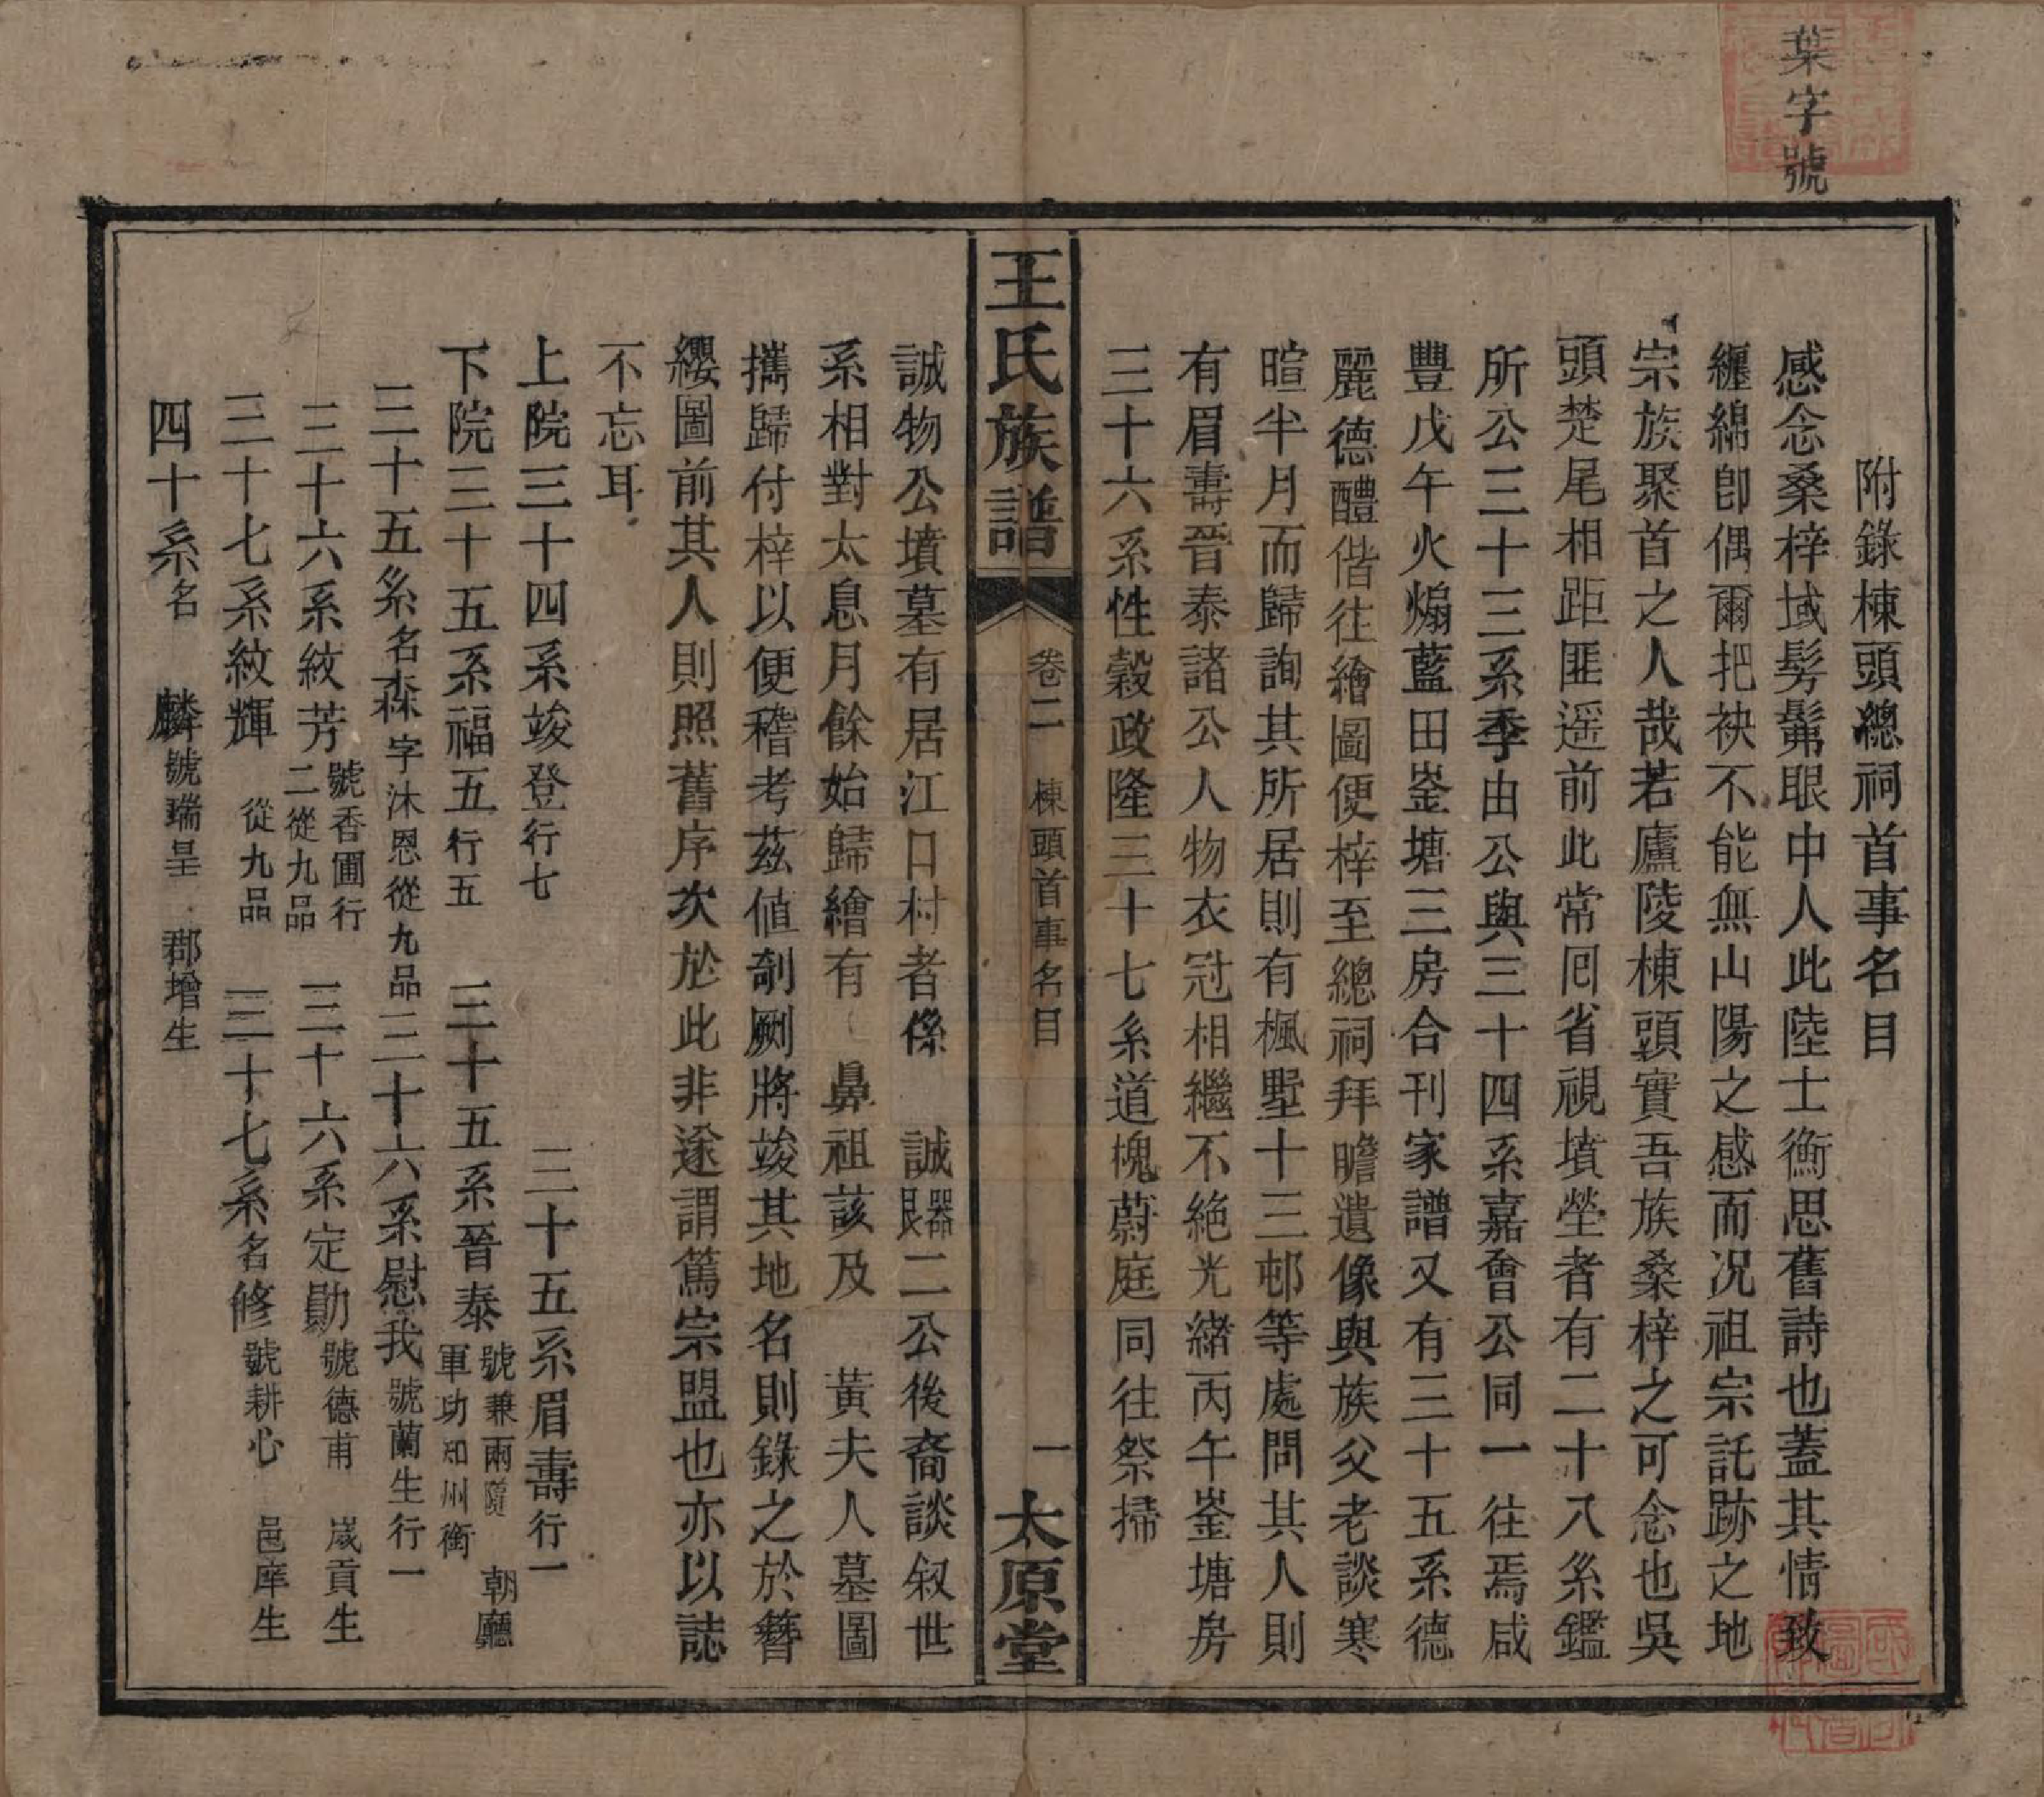 葉字號
附錄棟頭總祠首事名目
感念桑梓域髣髴眼中人此陸士衡思舊詩也蓋其情致
纏綿卽偶爾把袂不能無山陽之感而况祖宗託跡之地
宗族聚首之人哉若廬陵棟頭實吾族桑梓之可念也吳
頭楚尾相距匪遥前此常囘省視墳塋者有二十八系鑑
所公三十三系季由公與三十四系嘉會公同一往焉咸
豐戊午火煽藍田崟塘三房合刊家譜又有三十五系德
麗德醴偕往繪圖便梓至總祠拜瞻遺像與族父老談寒
暄半月而歸詢其所居則有楓墅十三邨等處問其人則
有眉壽晉泰諸公人物衣冠相繼不絶光緒丙午崟塘房
三十六系性穀政隆三十七系道槐蔚庭同往祭掃
王氏族譜
卷二 棟頭首事名目
一
太原堂
誠物公墳墓有居江口村者係 誠器艮二公後裔談叙世
系相對太息月餘始歸繪有 鼻祖該及 黃夫人墓圖
攜歸付梓以便稽考茲值剞劂將竣其地名則錄之於簪
纓圖前其人則照舊序次於此非途謂篤宗盟也亦以誌
不忘耳
上院三十四系竣登行七 三十五系眉壽行一
下院三十五系福五行五 三十五系晉泰號兼兩隨 朝廳軍功知州銜
三十五系名森字沐恩從九品 三十六系慰我號蘭生行一
三十六系紋芳號香圃行二從九品 三十六系定勛號德甫 歲貢生
三十七系紋輝 從九品 三十七系名修號耕心 邑庠生
四十系名 麟號瑞呈 郡增生